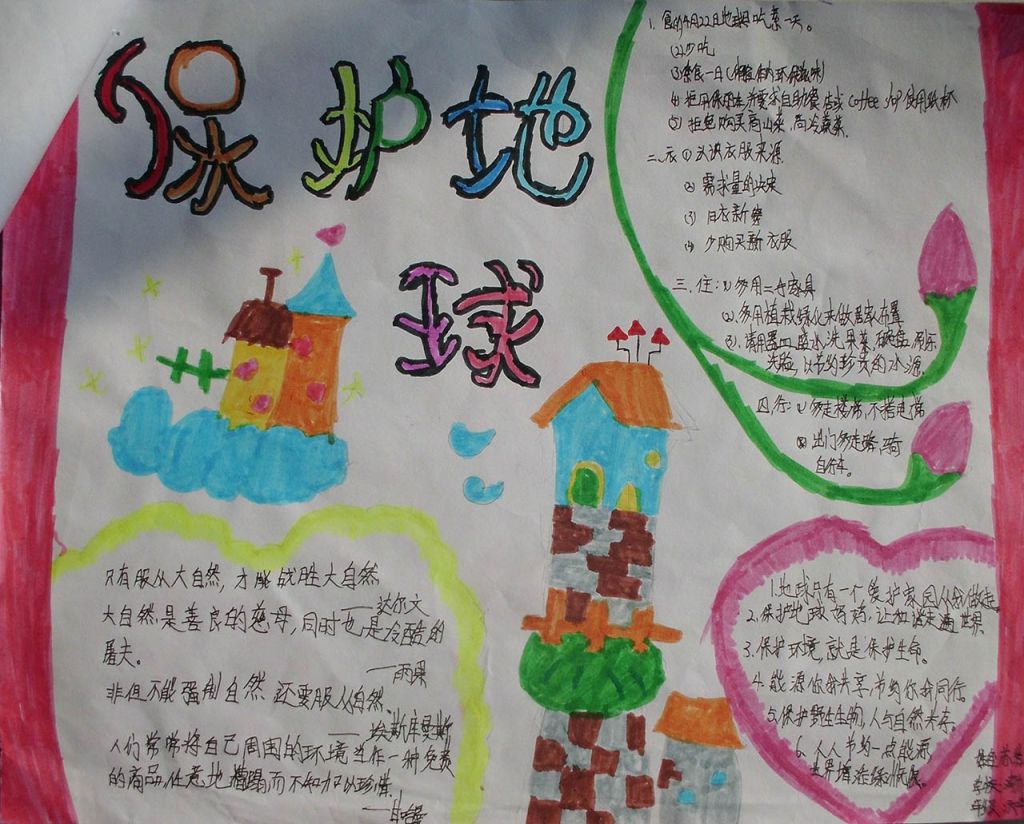 保护地
球
1. 食的4月22日地球日吃素一天。
(2)少吃
(4) 拒用保丽龙并要求自助餐店或 coffee shop 使用纸杯
(5) 拒绝购买高山菜、高冷蔬菜。
二、衣 ① 认识衣服来源
② 需求量的决定
(3) 旧衣新穿
(4) 少购买新衣服
三、住:(1) 多用二手家具
(2). 多用植栽绿化来做居家布置
(3). 请用器皿盛水洗果菜、碗盘、刷牙
洗脸, 以节约珍贵的水源.
四. 行: (1) 多走楼梯, 不搭电梯
② 出门多走路, 骑
自行车。
只有服从大自然, 才能战胜大自然
——达尔文
大自然是善良的慈母, 同时也是冷酷的
屠夫。
——雨果
非但不能强制自然, 还要服从自然。
——埃斯库罗斯
人们常常将自己周围的环境当作一种免费
的商品, 任意地糟蹋而不知加以珍惜。
——甘哈曼
1. 地球只有一个, 爱护家园从我做起.
2. 保护地球妈妈, 让 走遍世界
3. 保护环境, 就是保护生命。
4. 能源你我共享, 节约你我同行.
5. 保护野生生物, 人与自然共存。
6. 人人节约一点能源,
世界增添绿